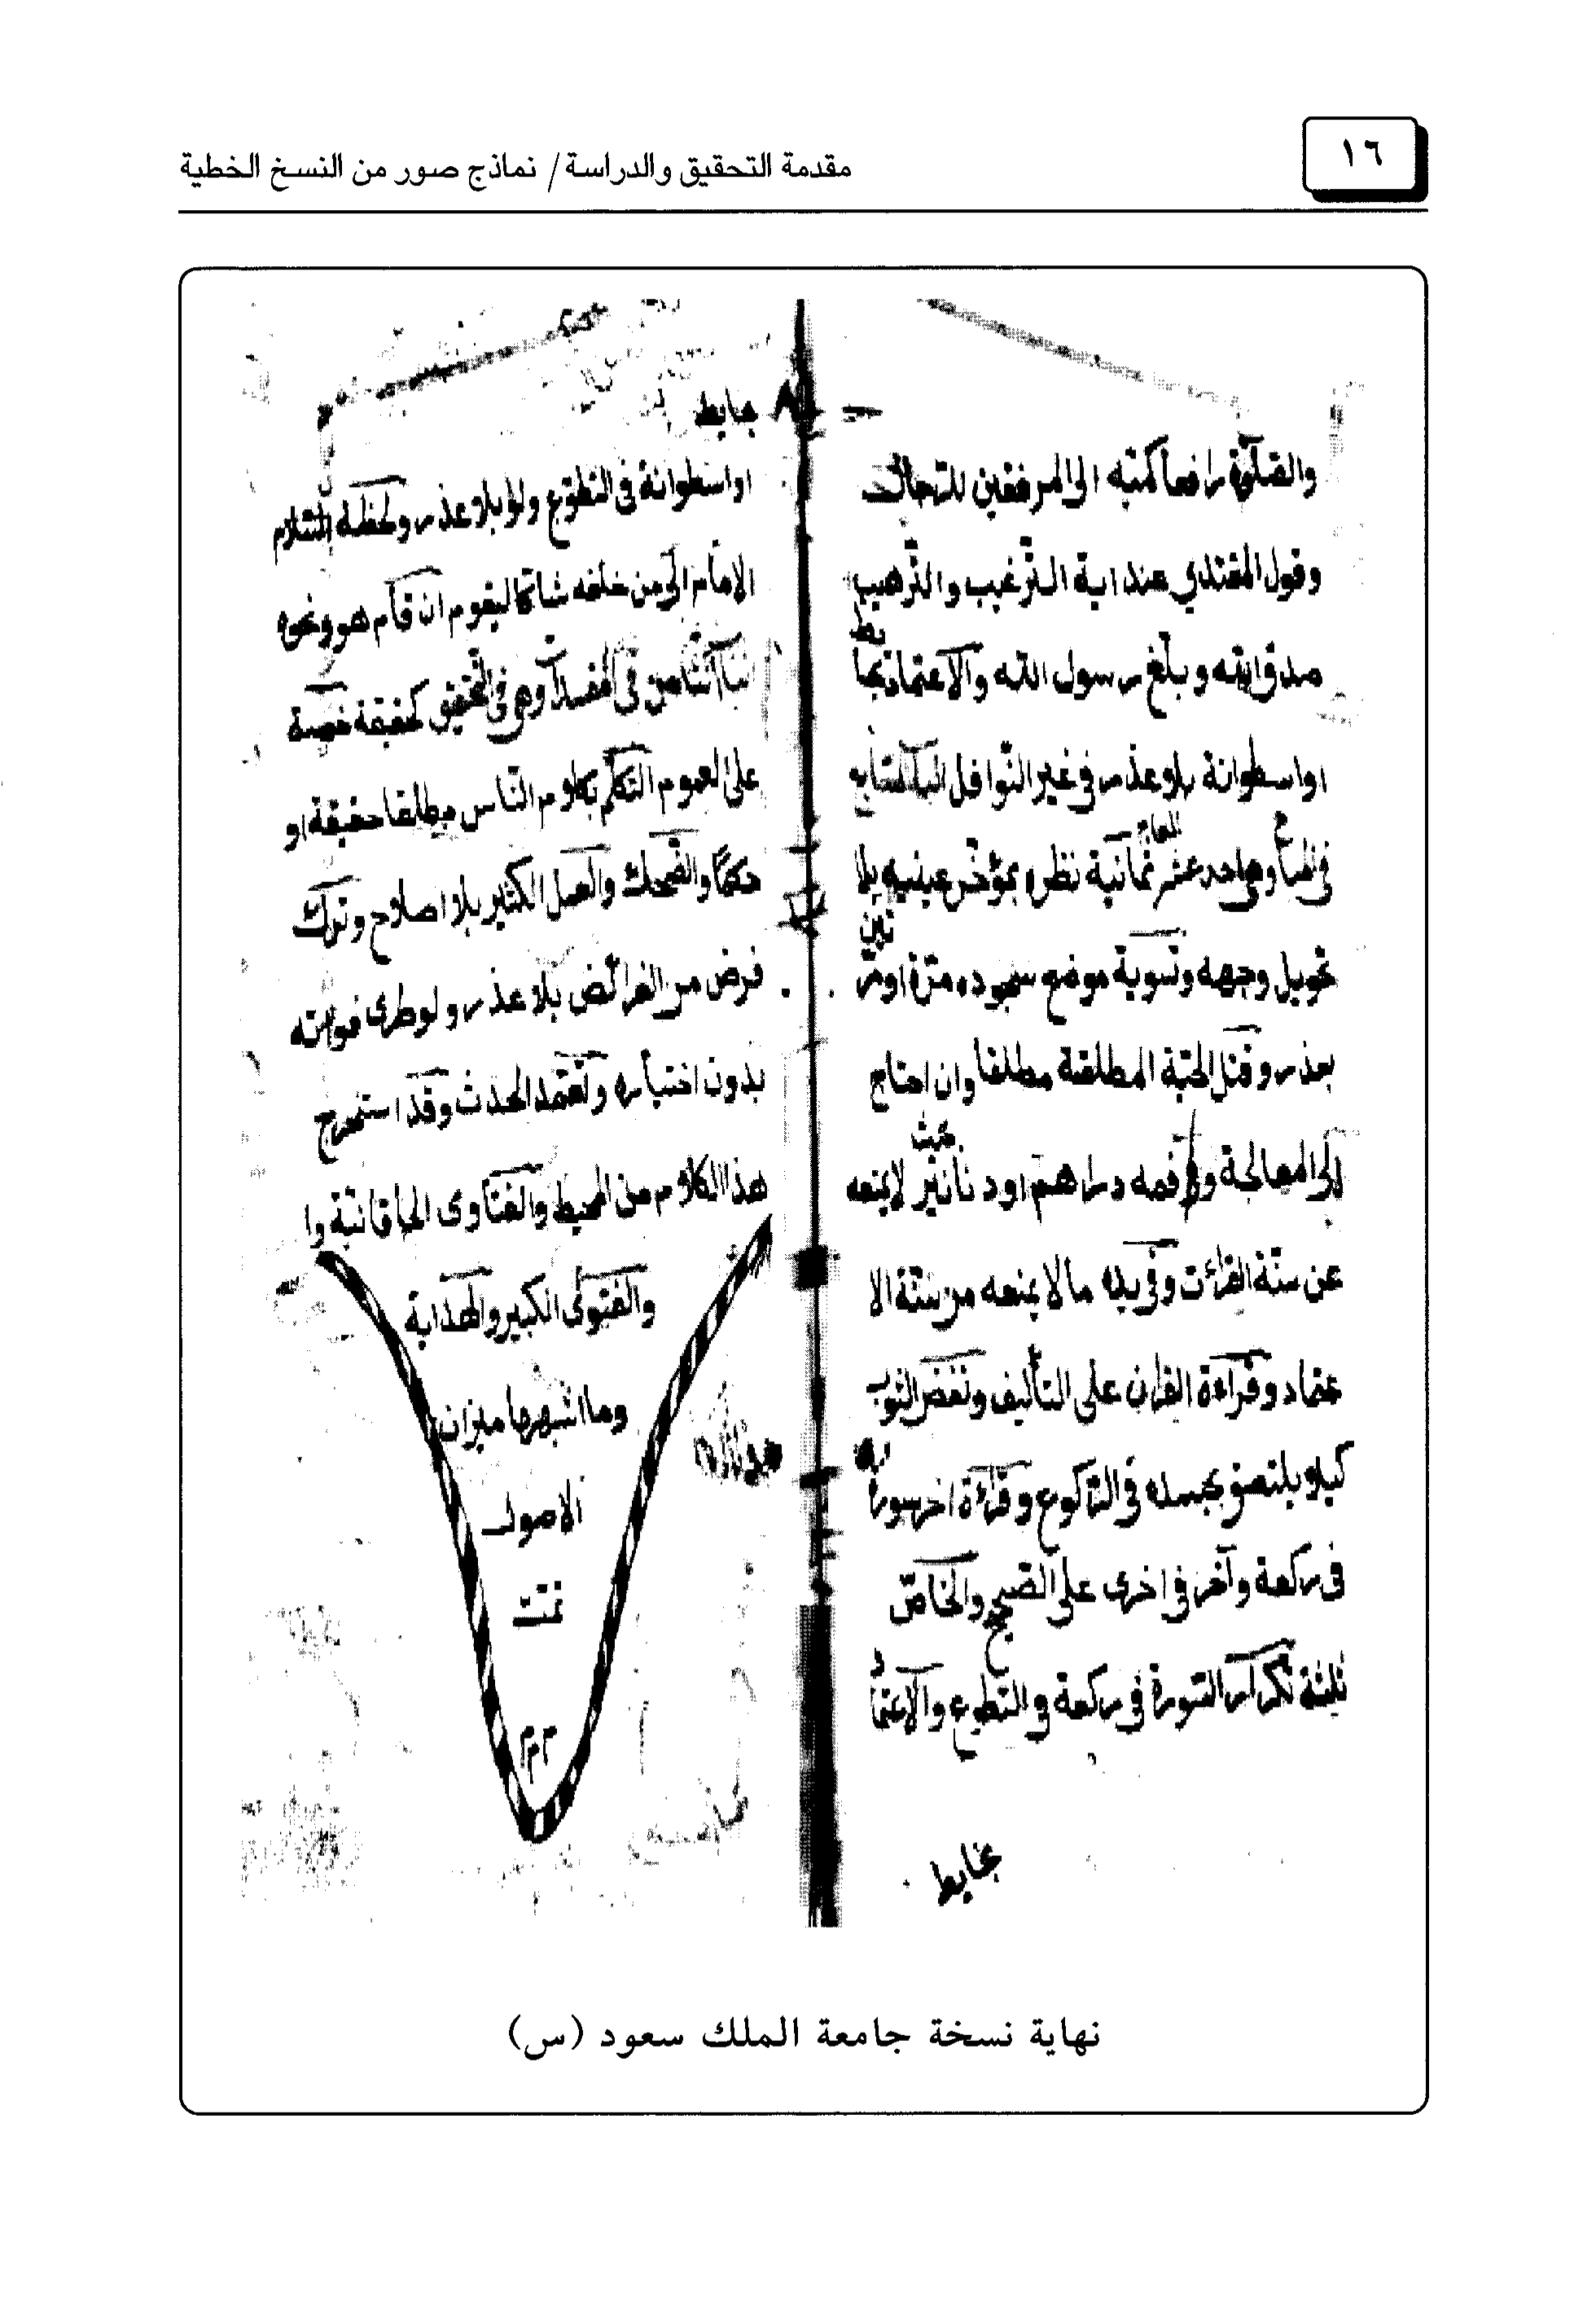 ١٦
مقدمة التحقيق والدراسة/ نماذج صور من النسخ الخطية
والصلوة رافعا كميه الى المرفقين للرجال
وقول المقتدي عند اية الترغيب والترهيب
صدق الله وبلغ رسول الله والاعتماد بحايط
او اسطوانة بلا عذر في غير النوافل الباب السابع
في المباح وهي احد عشر ثمانية نظره بمؤخر عينيه بلا
تحويل وجهه وتسوية موضع سجوده مرة او مرتين
بعذر وقتل الحية المطلقة مطلقا وان احتاج
الى المعالجة وفي فمه دراهم او دنانير بحيث لا يمنعه
عن سنة القراءت وفي يده مالا يمنعه من سنة الا
عتماد وقراءة القران على التأليف ونفض الثوب
كيلا يلتصق بجسده في الركوع وقراءة اخر سورة
في ركعة وآخر في اخرى على الصحيح والخاص
ثلثة تكرار السورة في ركعة في التطوع والاعتماد
بحايط
بحايط
او اسطوانة في التطوع ولو بلا عذر ولحظه
الامام الى من خلفه شاكا ليقوم ان قام هو ونحوه
الباب الثامن في المفسد وهي في التحقيق كحقيقة خمسة
على العموم التكلم بكلام الناس مطلقا حقيقة او
حكما والضحك والعمل الكثير بلا اصلاح وترك
فرض من الفرائض بلا عذر ولو طرى فواته
بدون اختياره وتعمد الحدث وقد استخرج
هذا الكلام من المحيط والفتاوى الخاقانية وا
والفتوى الكبير والهداية
وما اشبهها ميزان
الاصول
تمت
م م م
نهاية نسخة جامعة الملك سعود (س)